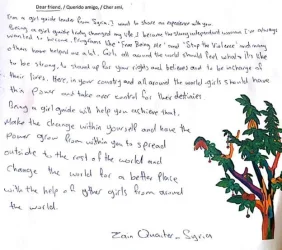 Dear friend, / Querido amigo, / Cher ami,
I'm a girl guide leader from Syria. I want to share an experience with you.
Being a girl guide leader changed my life. I became the strong independent woman I've always
wanted to become. Programs like "Free Being Me" and "Stop the Violence" and many
others have helped me a lot. Girls all around the world should feel what it's like
to be strong, to stand up for your rights and believes and to be in charge of
their lives. Here, in our country and all around the world girls should have
this power and take over control for their destinies
Being a girl guide will help you achieve that.
Make the change within yourself and have the
power grow from within you to spread
outside to the rest of the world and
change the world for a better place
with the help of other girls from around
the world.
Zain Syria